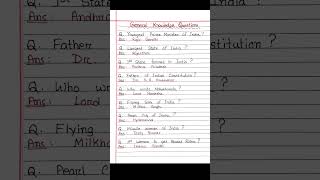 General Knowledge Question
Q. Youngest Prime Minister of India ?
Ans : Rajiv Gandhi
Q. Largest State of India ?
Ans : Rajasthan
Q. 1st State formed in India ?
Ans : Andhra Pradesh
Q. Father of Indian Constitution ?
Ans : Dr. B.R. Ambedkar
Q. Who wrote Mahabharata ?
Ans : Lord Ganesha
Q. Flying Sikh of India ?
Ans : Milkha Singh
Q. Pearl City of India ?
Ans : Hyderabad
Q. Missile woman of India ?
Ans : Tessy Thomas
Q. 1st Woman to get Bharat Ratna ?
Ans : Indira Gandhi
Q. 1st State
Ans : Andhra
Q. Father
Ans : Dr.
Q. Who
Ans : Lord
Q. Flying
Ans : Milkha
Q. Pearl C